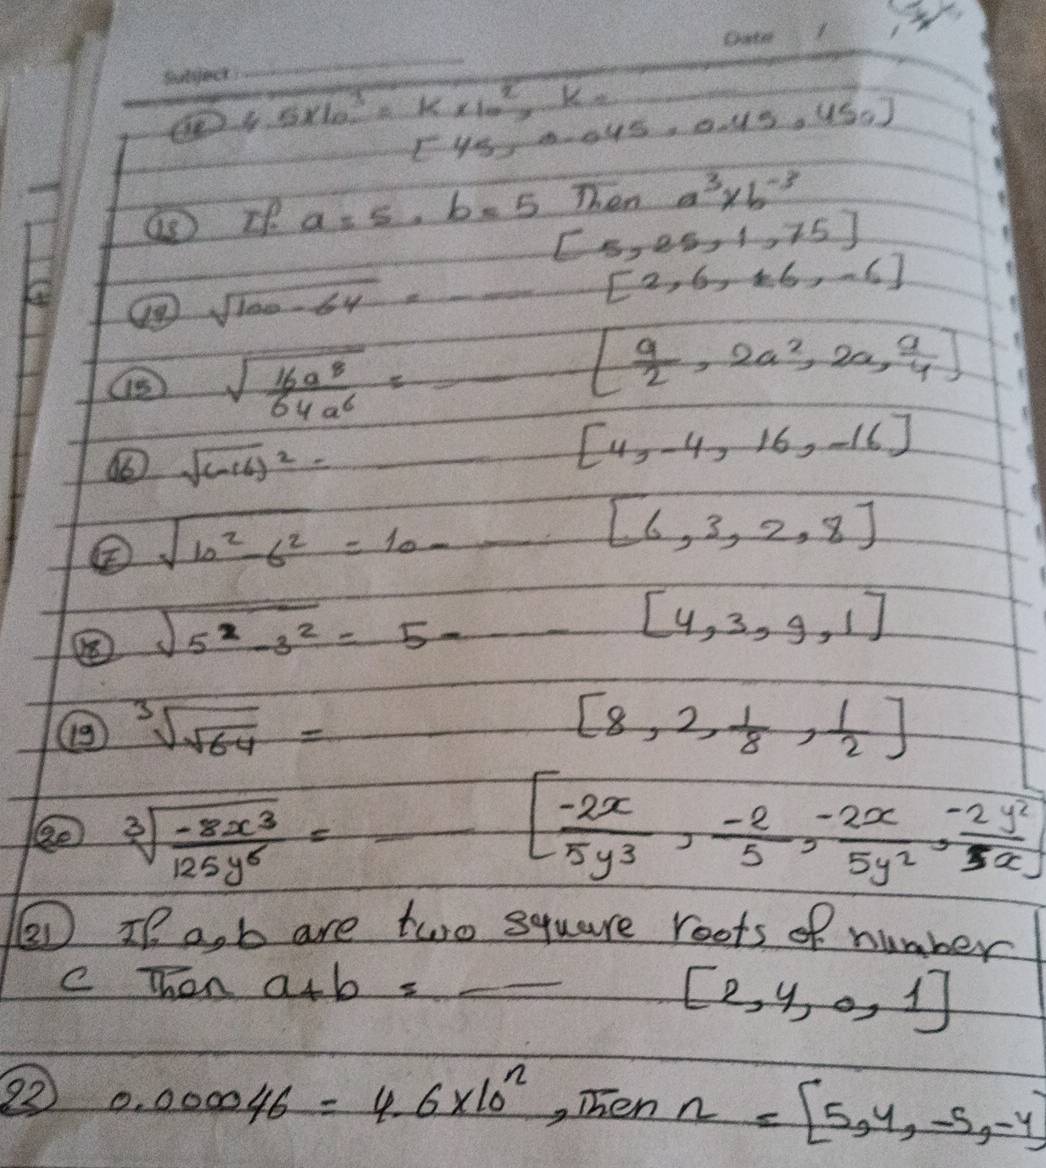 Subject:
Date /
4.5×10³ = K×10², K =
[45, 0.045, 0.45, 450]
If a = 5, b = 5 Then a³×b⁻³
[5, 25, 1, 75]
√(100-64) = ---- [2, 6, ±6, -6]
⑮ √(16a⁸/64a⁶) = ---- [a/2, 2a², 2a, a/4]
⑯ √(-16)² = ---- [4, -4, 16, -16]
√(10²-6²) = 10 - ---- [6, 3, 2, 8]
⑱ √(5²-3²) = 5 - ---- [4, 3, 9, 1]
⑲ ³√√64 = ---- [8, 2, 1/8, 1/2]
⑳ ³√(-8x³/125y⁶) = ---- [-2x/5y³, -2/5, -2x/5y², -2y²/5x]
㉑ If a, b are two square roots of number
c Then a+b = ---- [2, 4, 0, 1]
㉒ 0.000046 = 4.6×10ⁿ, Then n = [5, 4, -5, -4]